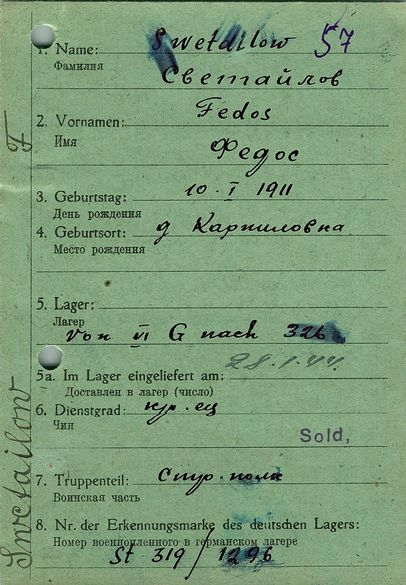 57
1. Name: Swetailow
Фамилия
Светайлов
2. Vornamen: Fedos
Имя
Федос
3. Geburtstag: 10. I 1911
День рождения
4. Geburtsort: д Карпиловка
Место рождения
5. Lager:
Лагер
von VI G nach 326
28.1.44.
5a. Im Lager eingeliefert am:
Доставлен в лагер (число)
6. Dienstgrad: кр. ец
Чин
Sold,
7. Truppenteil: Стр. полк
Воинская часть
8. Nr. der Erkennungsmarke des deutschen Lagers:
Номер военнопленного в германском лагере
St 319 / 1296
Swetailow F